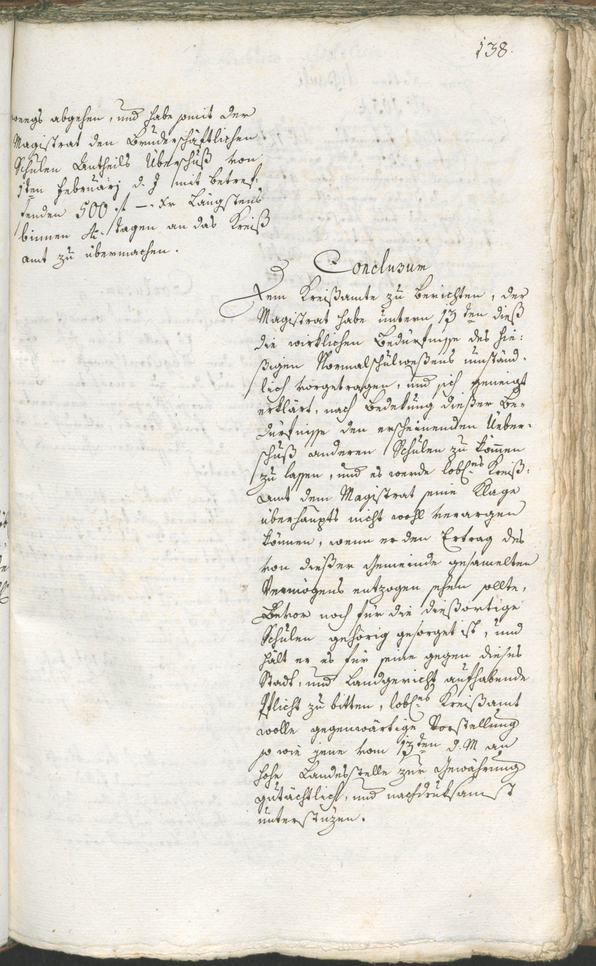 138.
wegs abgehen, und habe somit der
Magistrat den Bruderschäftlichen
Schulen Antheils Überschuß von
1ten Februarj d. J mit betref-
fenden 500 f — xr Längstens
binnen 4. tagen an das Kreiß
amt zu übermachen.
Conclusum
Dem Kreißamte zu berichten, der
Magistrat habe untern 13ten dieß
die wirklichen Bedürfnisse des hie-
sigen Normalschulwesens umständ-
lich vorgetragen, und sich geneigt
erklärt, nach Bedekung dießer Be-
dürfnisse den erscheinenden Ueber-
schuß anderen Schulen zu kom̄en
zu lassen, und es werde lobl.es Kreiß-
amt dem Magistrat seine Klage
überhaupts nicht wohl verargen
können, wenn er den Ertrag des
von dießer Gemeinde gesamelten
Vermögens entzogen sehen sollte,
Bevor noch für die dießortige
Schulen gehörig gesorget ist, und
hält er es für seine gegen dieses
Stadt, und Landgericht aufhabende
Pflicht zu bitten, lobl.es Kreißamt
wolle gegenwärtige Vorstellung
so wie jene vom 13ten d. M an
hohe Landesstelle zur Gewährung
gutächtlich, und nachdruksamst
unterstüzen.